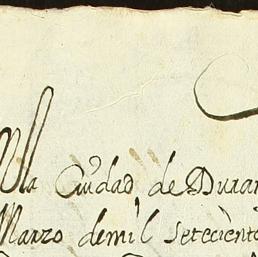 la Ciudad de Duran
Marzo de mil setecient